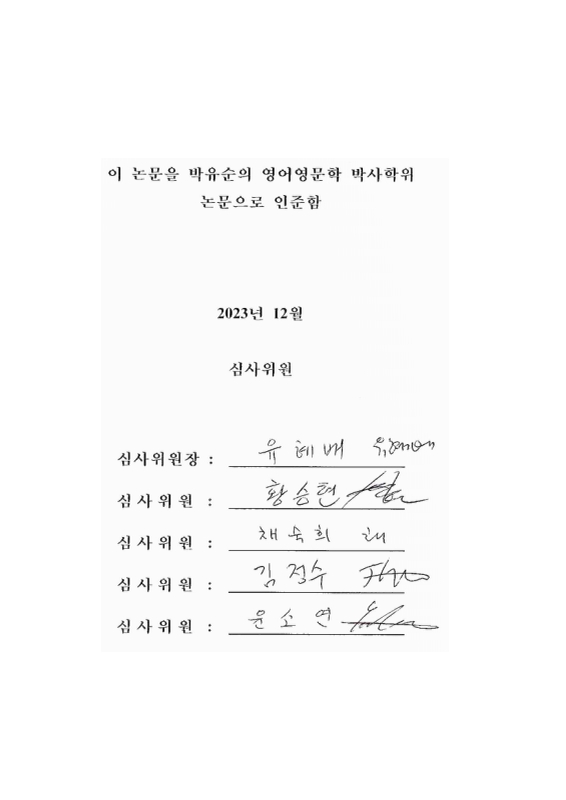 이 논문을 박유순의 영어영문학 박사학위
논문으로 인준함
2023년 12월
심사위원
심사위원장 : 유혜배
심사위원 : 황승현
심사위원 : 채숙희
심사위원 : 김정수
심사위원 : 윤소연